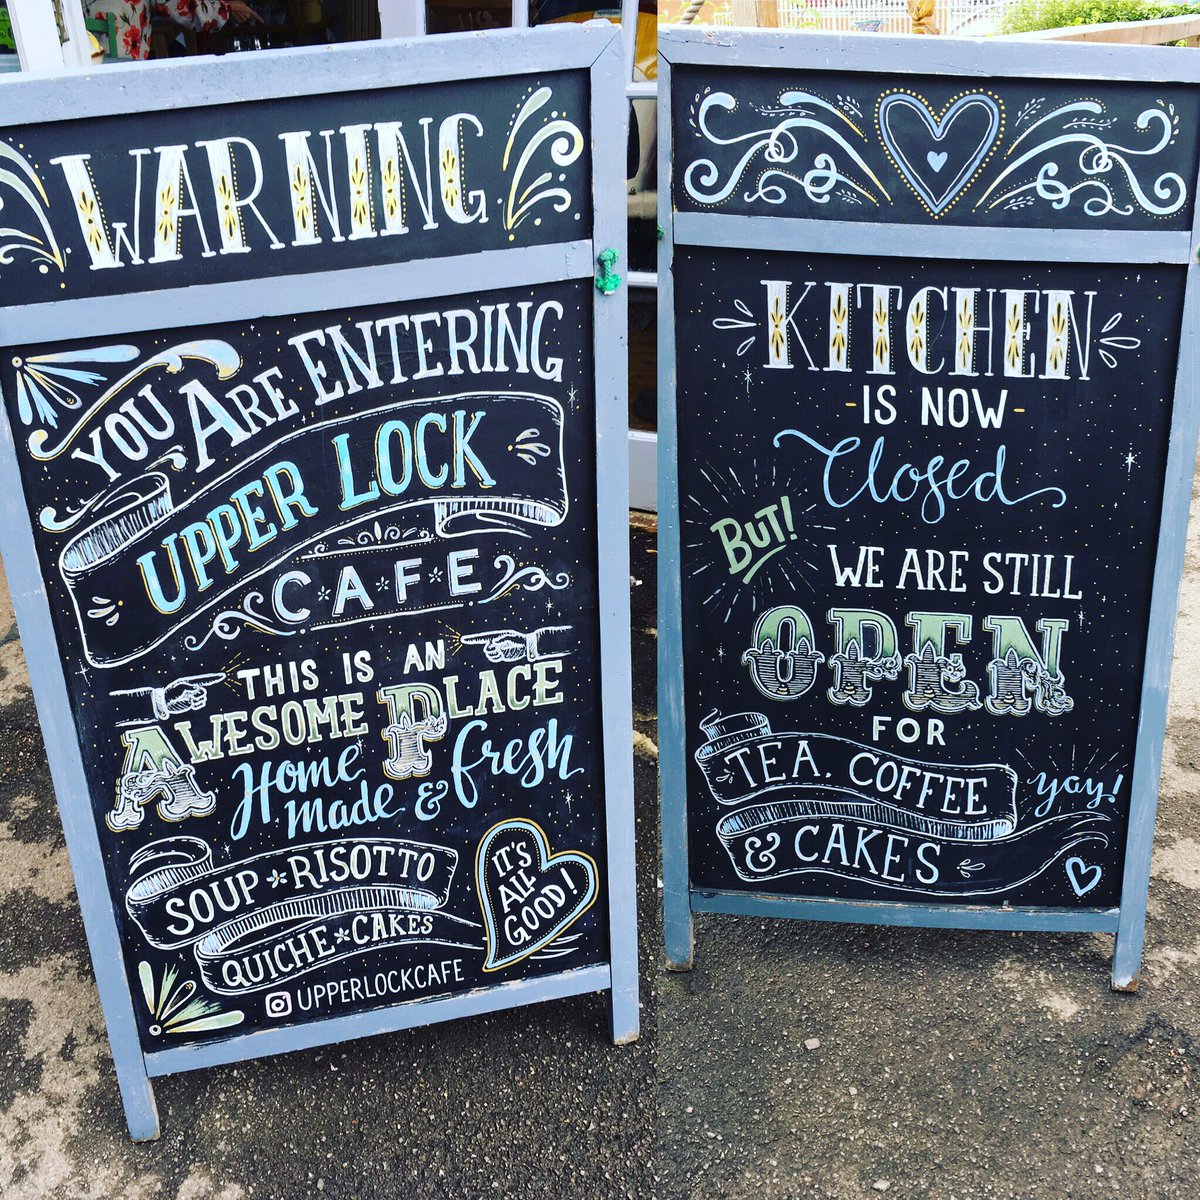 WARNING
YOU ARE ENTERING
UPPER LOCK
C*A*F*E
THIS IS AN
AWESOME PLACE
Home made & fresh
SOUP * RISOTTO
QUICHE * CAKES
IT'S
ALL
GOOD!
UPPERLOCKCAFE
KITCHEN
- IS NOW -
Closed
BUT!
WE ARE STILL
OPEN
FOR
TEA. COFFEE
& CAKES
yay!